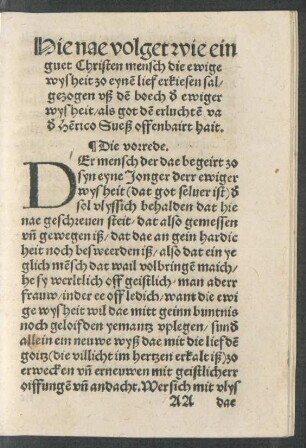 Hie nae volget wie ein
guet Christen mensch die ewige
wysheit zo eynē lief erkiesen sal⸗
gezogen vß dē boech d̄ ewiger
wysheit/als got dē erluchtē va
d̄ Hērico Sueß offenbairt hait.
¶Die vorrede.
DEr mensch der dae begeirt zo
syn eyne Jonger derr ewiger
wysheit (dat got seluer ist) d̄
sol vlyssich behalden dat hie
nae geschreuen steit/dat also gemessen
vn̄ gewegen iß/dat dae an gein hardic
heit noch besweerden iß/also dat ein ye
glich mēsch dat wail volbringē maich/
he sy werltlich off geistlich/man aderr
frauw/inder ee off ledich/want die ewi
ge wysheit wil dae mitt geinn buntnis
noch geloifden yemantz vplegen/sund̄
allein ein neuwe wyß dae mit die lief dē
goitz(die villicht im hertzen erkalt iß)zo
erwecken vn̄ erneuwen mit geistlicherr
oiffungē vn̄ andacht. Wer sich mit vlys
AA dae